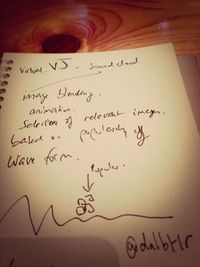 virtual VJ - Soundcloud
image blending.
animation.
Selection of relevant images.
based on popularity of
wave form.
Popular.
@dnlbtlr